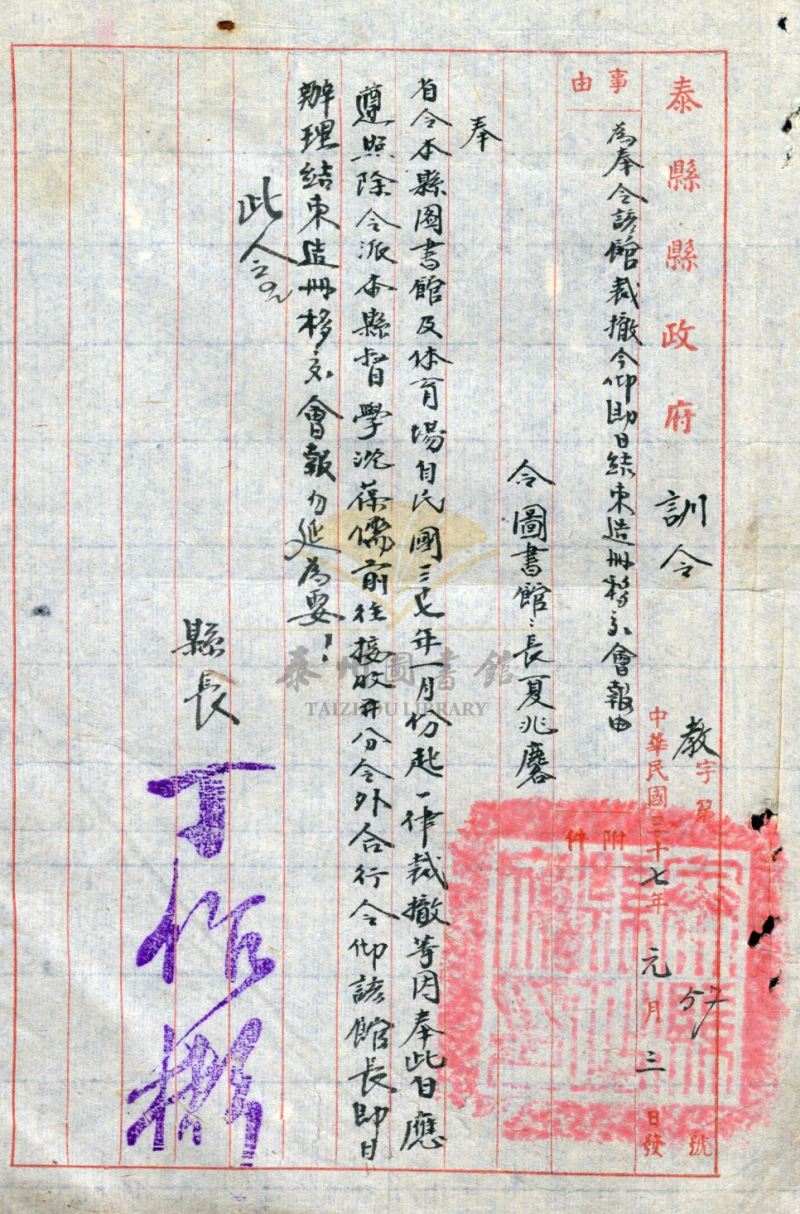 泰縣縣政府 訓令
教字第 57 號
中華民國三十七年元月三日發
事由
為奉令該館裁撤令仰即日結束造冊移交會報由
附件
令圖書館〻長夏兆麐
奉
省令本縣圖書館及体育場自民國三七年一月份起一律裁撤等因奉此自應
遵照除令派本縣督學沈葆儒前往接收并分令外合行令仰該館長即日
辦理結束造冊移交會報勿延為要！
此令
縣長
丁作彬
泰州圖書館
TAIZHOU LIBRARY